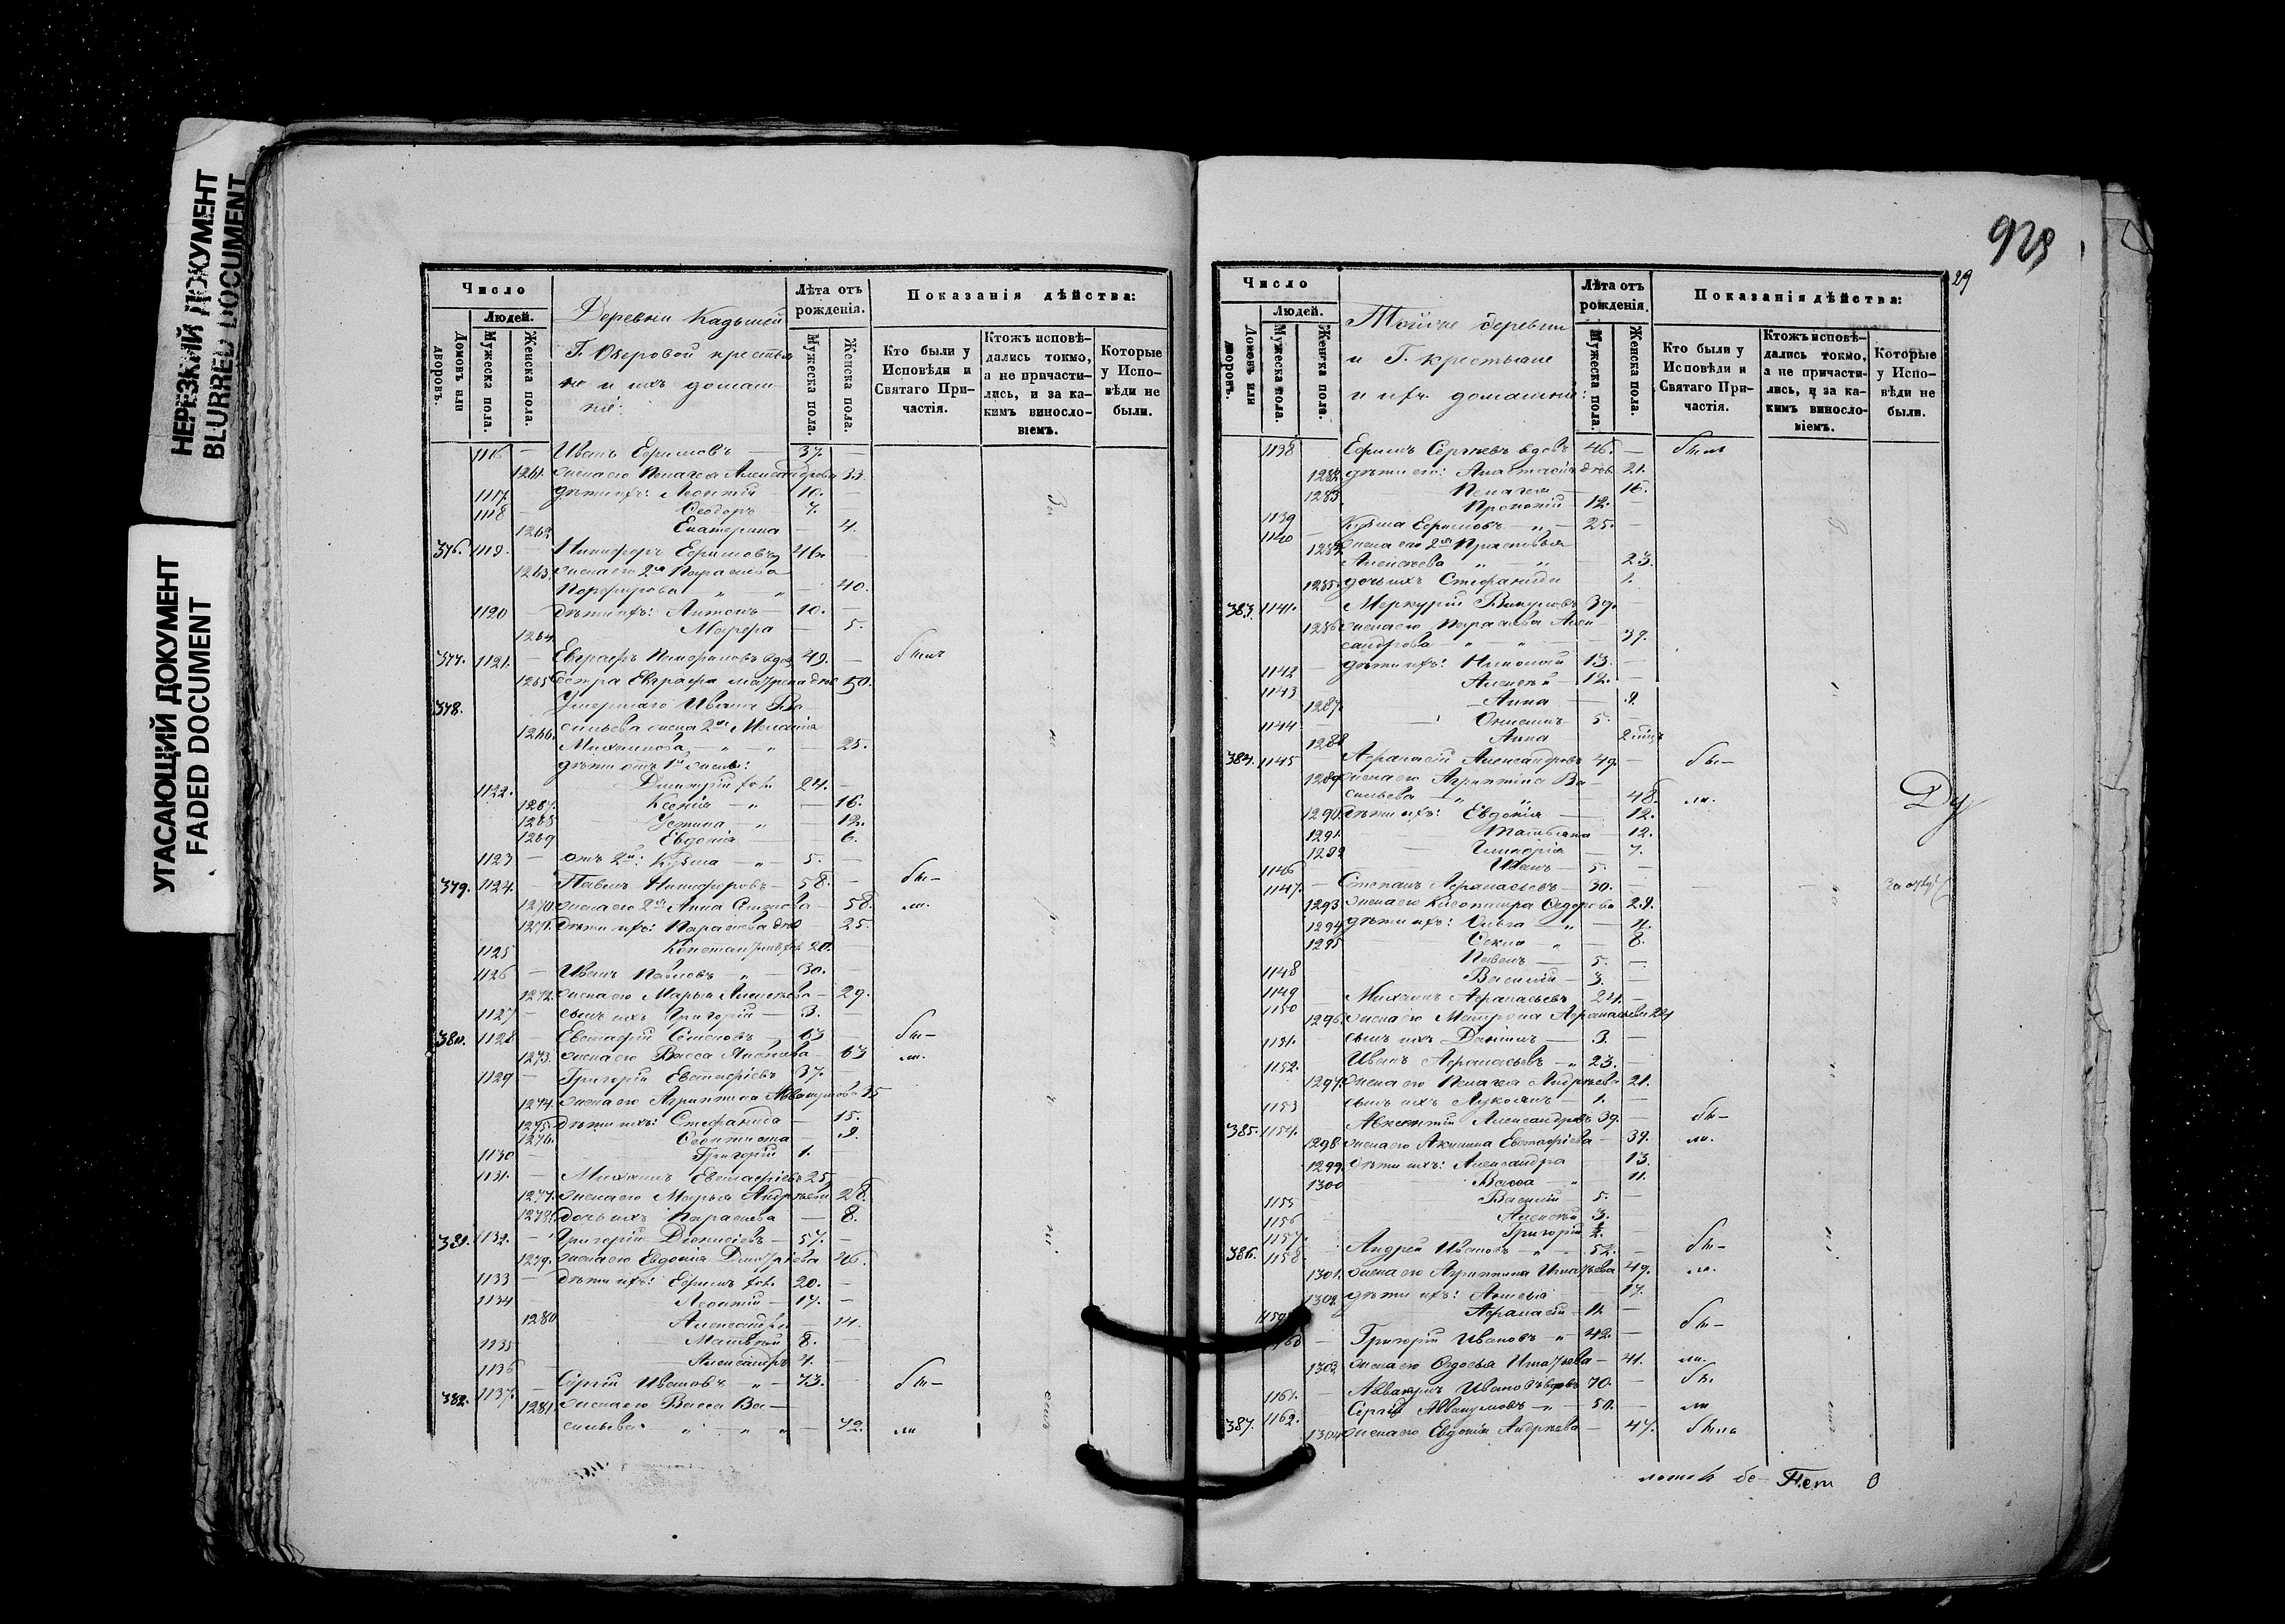 НЕРЕЗКИЙ ДОКУМЕНТ
BLURRED DOCUMENT
УГАСАЮЩИЙ ДОКУМЕНТ
FADED DOCUMENT
Число
Людей.
Домовъ или дворовъ.
Мужеска пола.
Женска пола.
Деревни
Г. Озеровой крестья
не и ихъ домаш
ніе:
Лѣта отъ рожденія.
Мужеска пола.
Женска пола.
Показанія дѣйства:
Кто были у Исповѣди и Святаго Причастія.
Ктожъ исповѣдались токмо, а не причастились, и за какимъ винословіемъ.
Которые у Исповѣди не были.
1116 — Иванъ Ефимовъ — 37. —
1261. жена его Пелагея Александрова 33.
1117 — дѣти ихъ: Леонтій — 10. —
1118 — Ѳеодоръ — 7.
1262 Екатерина — 4.
376. 1119. — Никифоръ Ефимовъ 46. —
1263. жена его 2я Параскева
Порфирова „ „ — 40.
1120 — дѣти ихъ: Антонъ — 10. —
1264. Марфа — 5.
377. 1121. — Евграфъ вдов. 49. — былъ
1265 сестра Евграфа 50.
378. Умершаго Ивана Ва
1266. сильева жена 2я Меланія
Михайлова — „ — „ — 25.
дѣти отъ 1й жены:
1122. Димитрій хол. 24. —
1267. Ксенія — „ — 16.
1268 Устина — „ — 12.
1269 Евдокія — 6.
1123 — отъ 2й: Козма — „ — 5. —
379. 1124. — Павелъ Никифоровъ — 58. — бы—
1270. жена его 2я Анна — 58. ли.
1271. дѣти ихъ: Параскева 25.
1125 Константинъ хол. 20. —
1126 — Иванъ Павловъ — „ — 30. —
1272. жена его Марья Алексѣева — 29.
1127 — сынъ ихъ Григорій — 3. —
380. 1128 — Евстафій — 63 — бы—
1273. жена его Васса — 63 ли.
1129 — Григорій Евстафіевъ 37. —
1274. жена его Агриппина Аввакумова 35
1275. дѣти ихъ: Стефанида — 15.
1276. — 9.
1130 — Григорій 1. —
1131. — Михаилъ Евстафіевъ 25
1277. жена его Марья Андреева 28.
1278. дочь ихъ Параскева — 8.
381. 1132. — Григорій Діонисіевъ — 57. —
1279. жена его Евдокія Дмитріева 46.
1133 — дѣти ихъ: Ефимъ хол. 20. —
1134 Леонтій — 17. —
1280 Александра — 14.
1135 8. —
1136 Александръ 4. —
382. 1137. — Сергій Ивановъ „ — 73. — бы—
1281. жена его Васса Ва—
сильева „ „ „ — 72. ли
929
29
Число
Людей.
Домовъ или дворовъ.
Мужеска пола.
Женска пола.
Тойже деревни
и Г. крестьяне
и ихъ домашніе:
Лѣта отъ рожденія.
Мужеска пола.
Женска пола.
Показанія дѣйства:
Кто были у Исповѣди и Святаго Причастія.
Ктожъ исповѣдались токмо, а не причастились, и за какимъ винословіемъ.
Которые у Исповѣди не были.
1138 Ефимъ Сергѣевъ вдовъ 46. — былъ
1282. дѣти его: Анастасія 21.
1283. Пелагея — 16.
1139 Прокопій — 12. —
1140 Козма Ефимовъ — „ — 25. —
1284. жена его 2я Прасковья
Алексѣева „ „ — 23.
1285. дочь ихъ Стефанида 1.
383. 1141. — Меркурій Викуловъ 39. —
1286 жена его Параскева Алек
сандрова — „ „ — 39.
1142 — дѣти ихъ: Николай — 13. —
1143 Алексѣй — 12. —
1287. Анна — 9.
1144 5. —
1288 Анна
384. 1145 — Афанасій Александровъ 49. — бы—
1289 жена его Агриппина Ва—
сильева — „ „ — 48. ли.
1290. дѣти ихъ: Евдокія — 12.
1291. Татьяна — 12.
1292 Гликерія — 7.
1146 Иванъ — 5. —
1147. — Степанъ Афанасьевъ — 30. —
1293 жена его Клеопатра Ѳедорова 29.
1294 дѣти ихъ: Ольга — „ — 11.
1295 Ѳекла „ — 8.
1148 Павелъ — 5. —
1149 Василій — 3. —
1150 Михаилъ Афанасьевъ 24. —
1296. жена его Матрона Афанасьева 24
1151. сынъ ихъ Даніилъ — 3. —
1152. Иванъ Афанасьевъ — „ 23. —
1297. жена его Пелагея Андреева 21.
1153 сынъ ихъ Лукіанъ — 1. —
385. 1154. Авксентій Александровъ 39. — бы—
1298. жена его Акилина Евстафіева — 39. ли.
1299. дѣти ихъ: Александра 13.
1300 Васса „ 11.
1155 Василій — 5. —
1156 Алексѣй 3. —
1157. Григорій ½. —
386. 1158. Андрей Ивановъ „ — 52. — бы—
1301. жена его Агриппина Игнатьева 49. ли.
1302 дѣти ихъ: — 17.
1159 Афанасій — 11. —
1160 — Григорій Ивановъ „ 42. — бы—
1303. жена его Ѳедосья Игнатьева — 41. ли.
1161. — Аввакумъ Ивановъ вдовъ 70. — бы.
387. 1162. Сергій Аввакумовъ — „ 50. — ли
1304 жена его Евдокія Андреева — 47. была